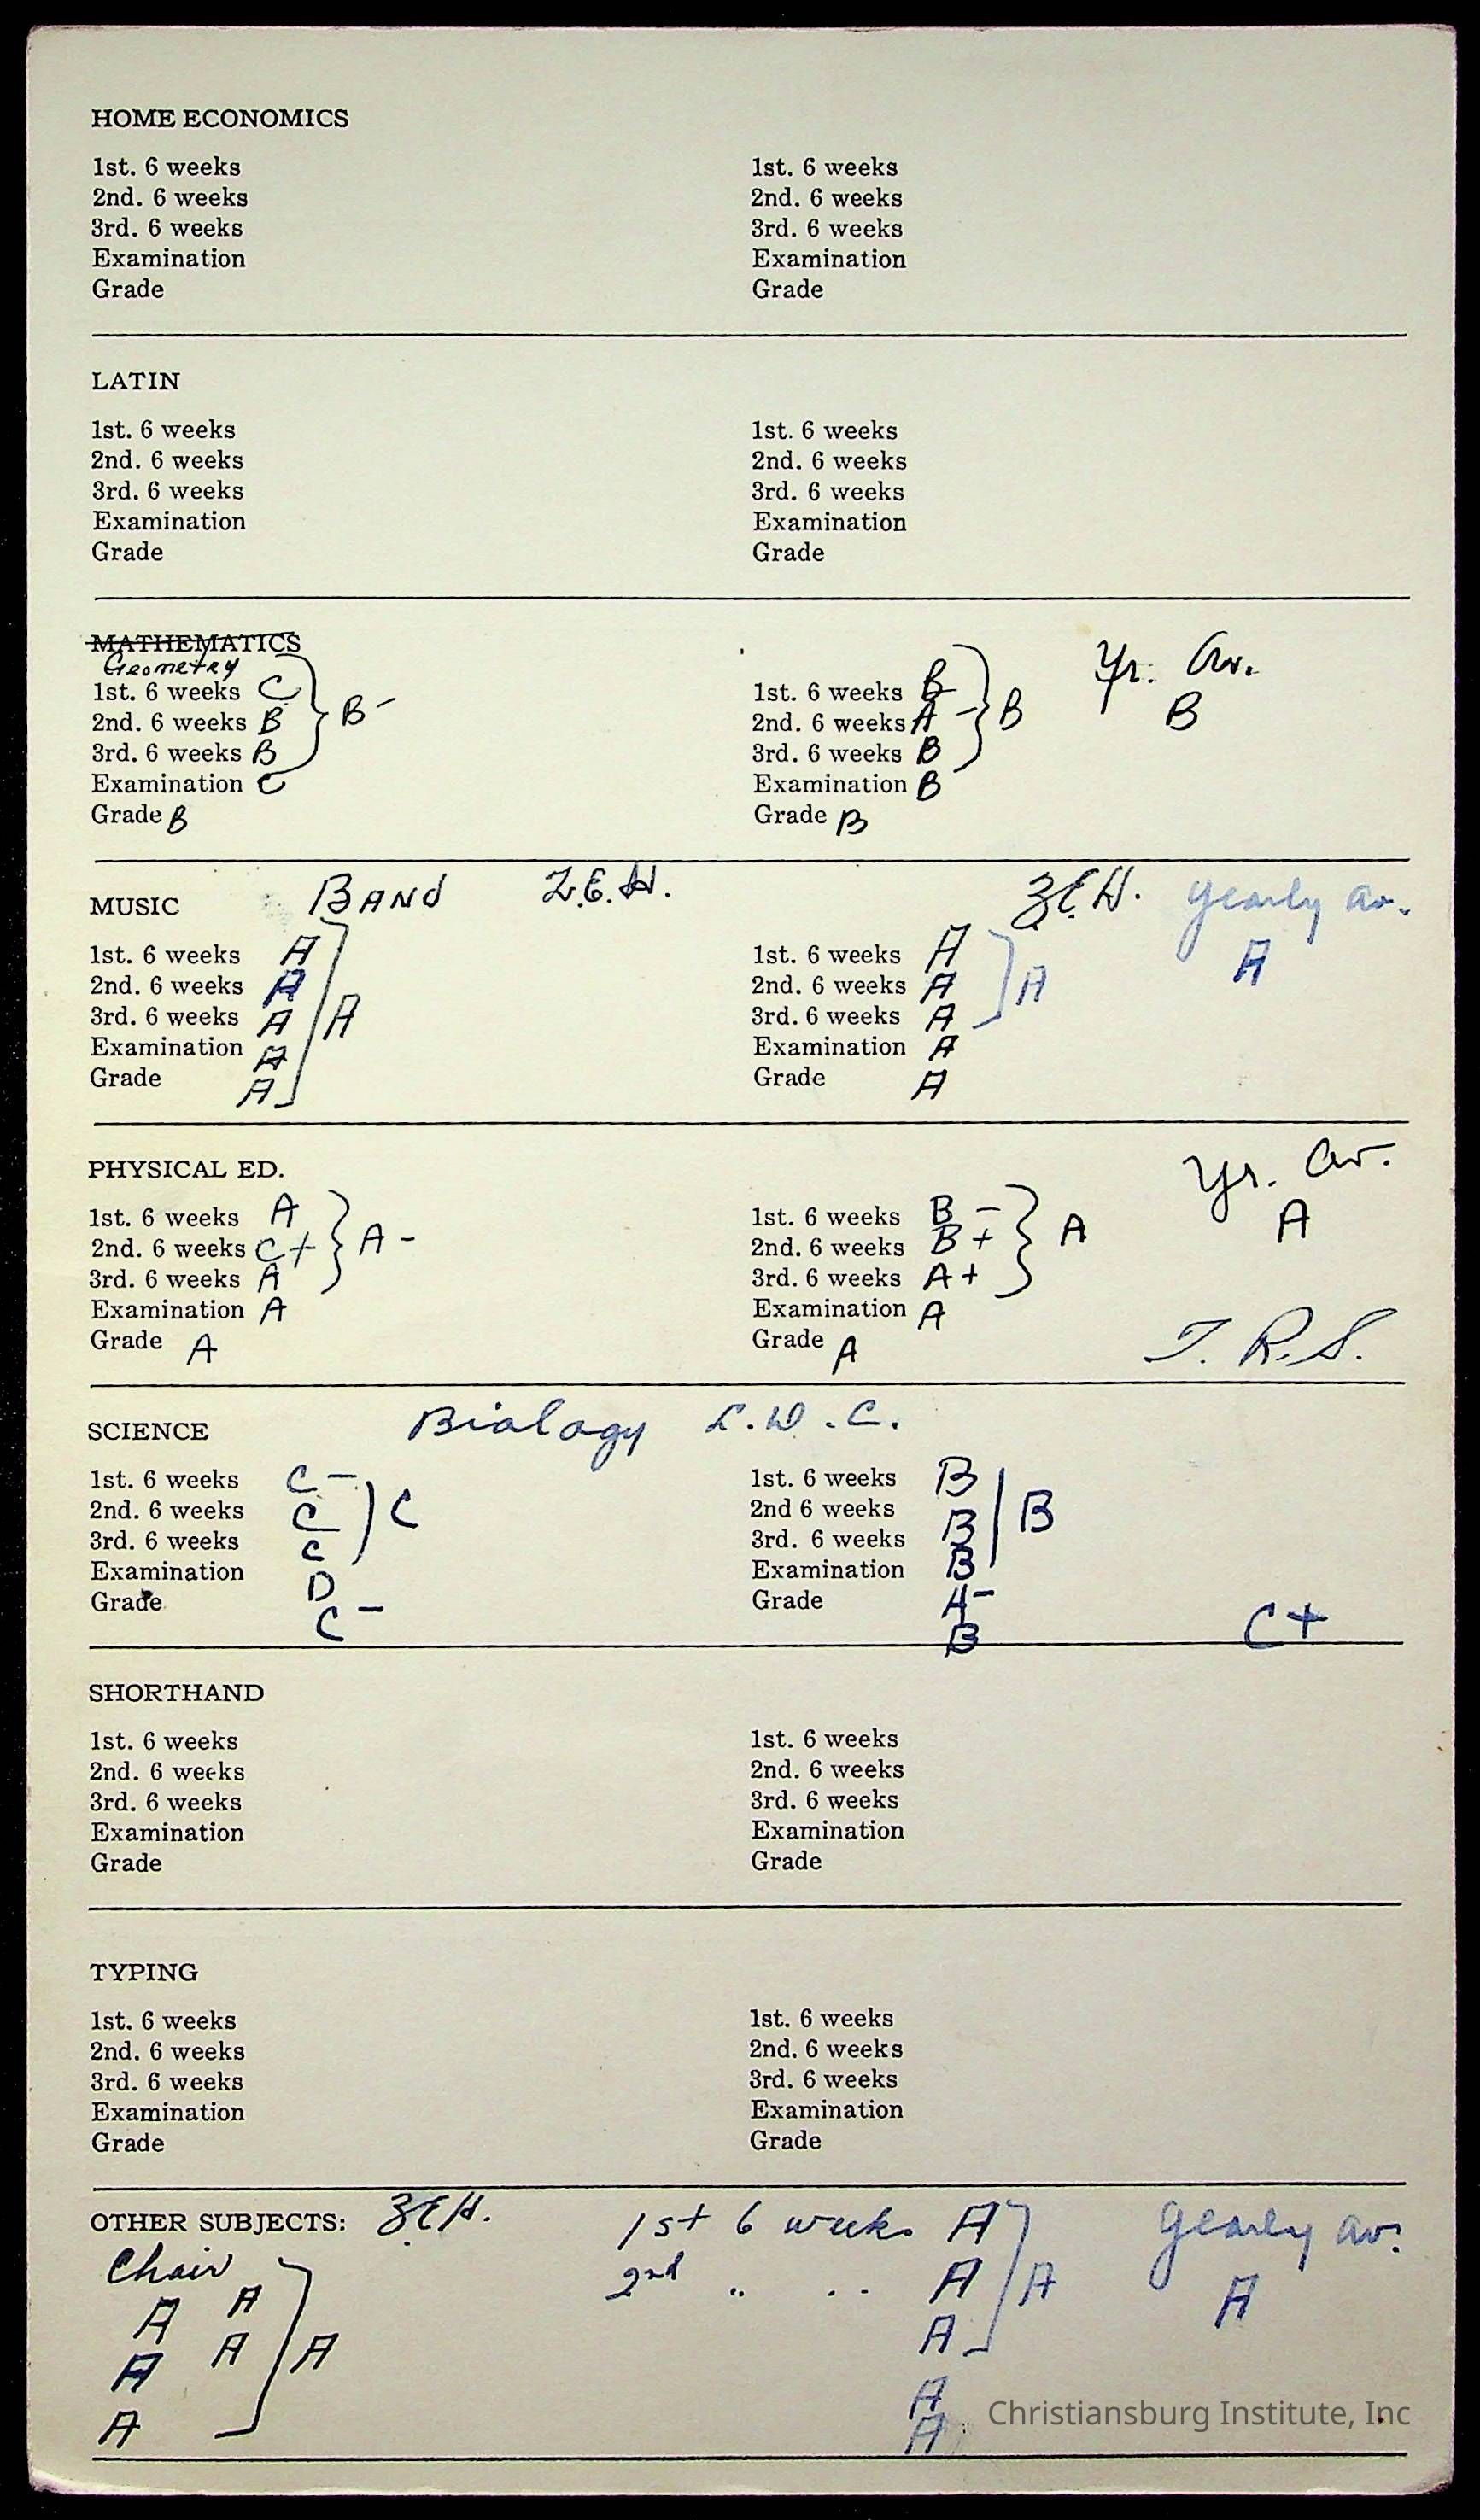 HOME ECONOMICS
1st. 6 weeks 1st. 6 weeks
2nd. 6 weeks 2nd. 6 weeks
3rd. 6 weeks 3rd. 6 weeks
Examination Examination
Grade Grade
LATIN
1st. 6 weeks 1st. 6 weeks
2nd. 6 weeks 2nd. 6 weeks
3rd. 6 weeks 3rd. 6 weeks
Examination Examination
Grade Grade
MATHEMATICS Yr. Av.
Geometry
1st. 6 weeks C 1st. 6 weeks B
2nd. 6 weeks B B- 2nd. 6 weeks A - B B
3rd. 6 weeks B 3rd. 6 weeks B
Examination C Examination B
Grade B Grade B
MUSIC BAND Z.E.H. Z.E.H. Yearly av.
1st. 6 weeks A 1st. 6 weeks A A
2nd. 6 weeks A 2nd. 6 weeks A A
3rd. 6 weeks A A 3rd. 6 weeks A
Examination A Examination A
Grade A Grade A
PHYSICAL ED. Yr. Av.
1st. 6 weeks A 1st. 6 weeks B - A
2nd. 6 weeks C+ A - 2nd. 6 weeks B + A
3rd. 6 weeks A 3rd. 6 weeks A +
Examination A Examination A
Grade A Grade A T. R. S.
SCIENCE Biology L.W.C.
1st. 6 weeks C - 1st. 6 weeks B
2nd. 6 weeks C C 2nd 6 weeks B B
3rd. 6 weeks C 3rd. 6 weeks B
Examination D Examination A-
Grade C - Grade B C+
SHORTHAND
1st. 6 weeks 1st. 6 weeks
2nd. 6 weeks 2nd. 6 weeks
3rd. 6 weeks 3rd. 6 weeks
Examination Examination
Grade Grade
TYPING
1st. 6 weeks 1st. 6 weeks
2nd. 6 weeks 2nd. 6 weeks
3rd. 6 weeks 3rd. 6 weeks
Examination Examination
Grade Grade
OTHER SUBJECTS: Z.E.H. 1st 6 weeks A Yearly av.
Choir 2nd " .. A A A
A A A
A A A A
A A
Christiansburg Institute, Inc